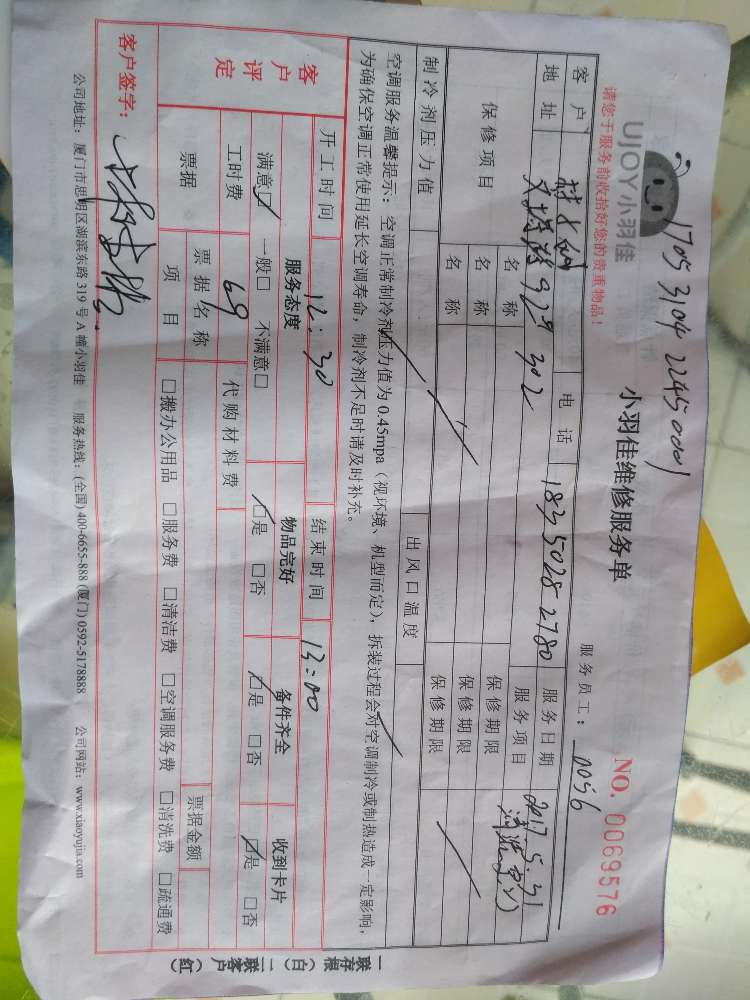 1705 3104 2245 0001
UJOY小羽佳
请您于服务前收拾好您的贵重物品！
小羽佳维修服务单
服务员工： 0056
NO. 0069576
客户 电话 18350282780 服务日期 2017.5.31
地址 929 302 服务项目
保修项目 名称 保修期限
名称 保修期限
名称 保修期限
制冷剂压力值 出风口温度
空调服务温馨提示：空调正常制冷剂压力值为 0.45mpa（视环境、机型而定），拆装过程会对空调制冷或制热造成一定影响，
为确保空调正常使用延长空调寿命，制冷剂不足时请及时补充。
开工时间 12：30 结束时间 13：00
客户评定 服务态度 物品完好 备件齐全 收到卡片
满意☑ 一般□ 不满意□ ☑是 □否 ☑是 □否 ☑是 □否
工时费 69 代购材料费
票据 票据名称 票据金额
项目 □搬办公用品 □服务费 □清洁费 □空调服务费 □清洗费 □疏通费
客户签字：
公司地址：厦门市思明区湖滨东路 319 号 A 幢小羽佳 服务热线：(全国) 400-6655-888 (厦门) 0592-5178888 公司网站：www.xiaoyujia.com
一联存根（白） 二联客户（红）